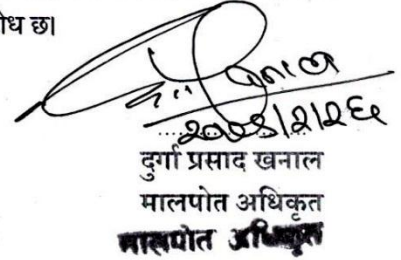 ोध छ।
दुर्गा प्रसाद खनाल
मालपोत अधिकृत
मालपोत अधिकृत